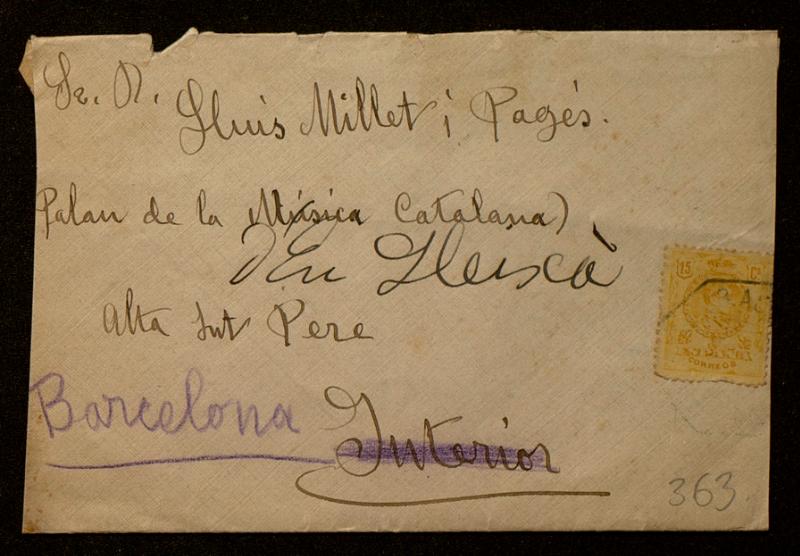 Sr. D.
Lluis Millet i Pagés.
Palau de la Música Catalana)
Alta Snt Pere
Barcelona
Interior
363
15 Cs
CORREOS